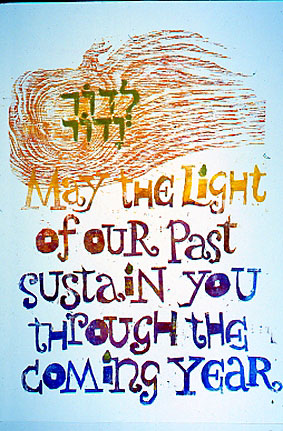 לדור
ודור
May the Light
of our Past
sustain you
through the
coming Year.